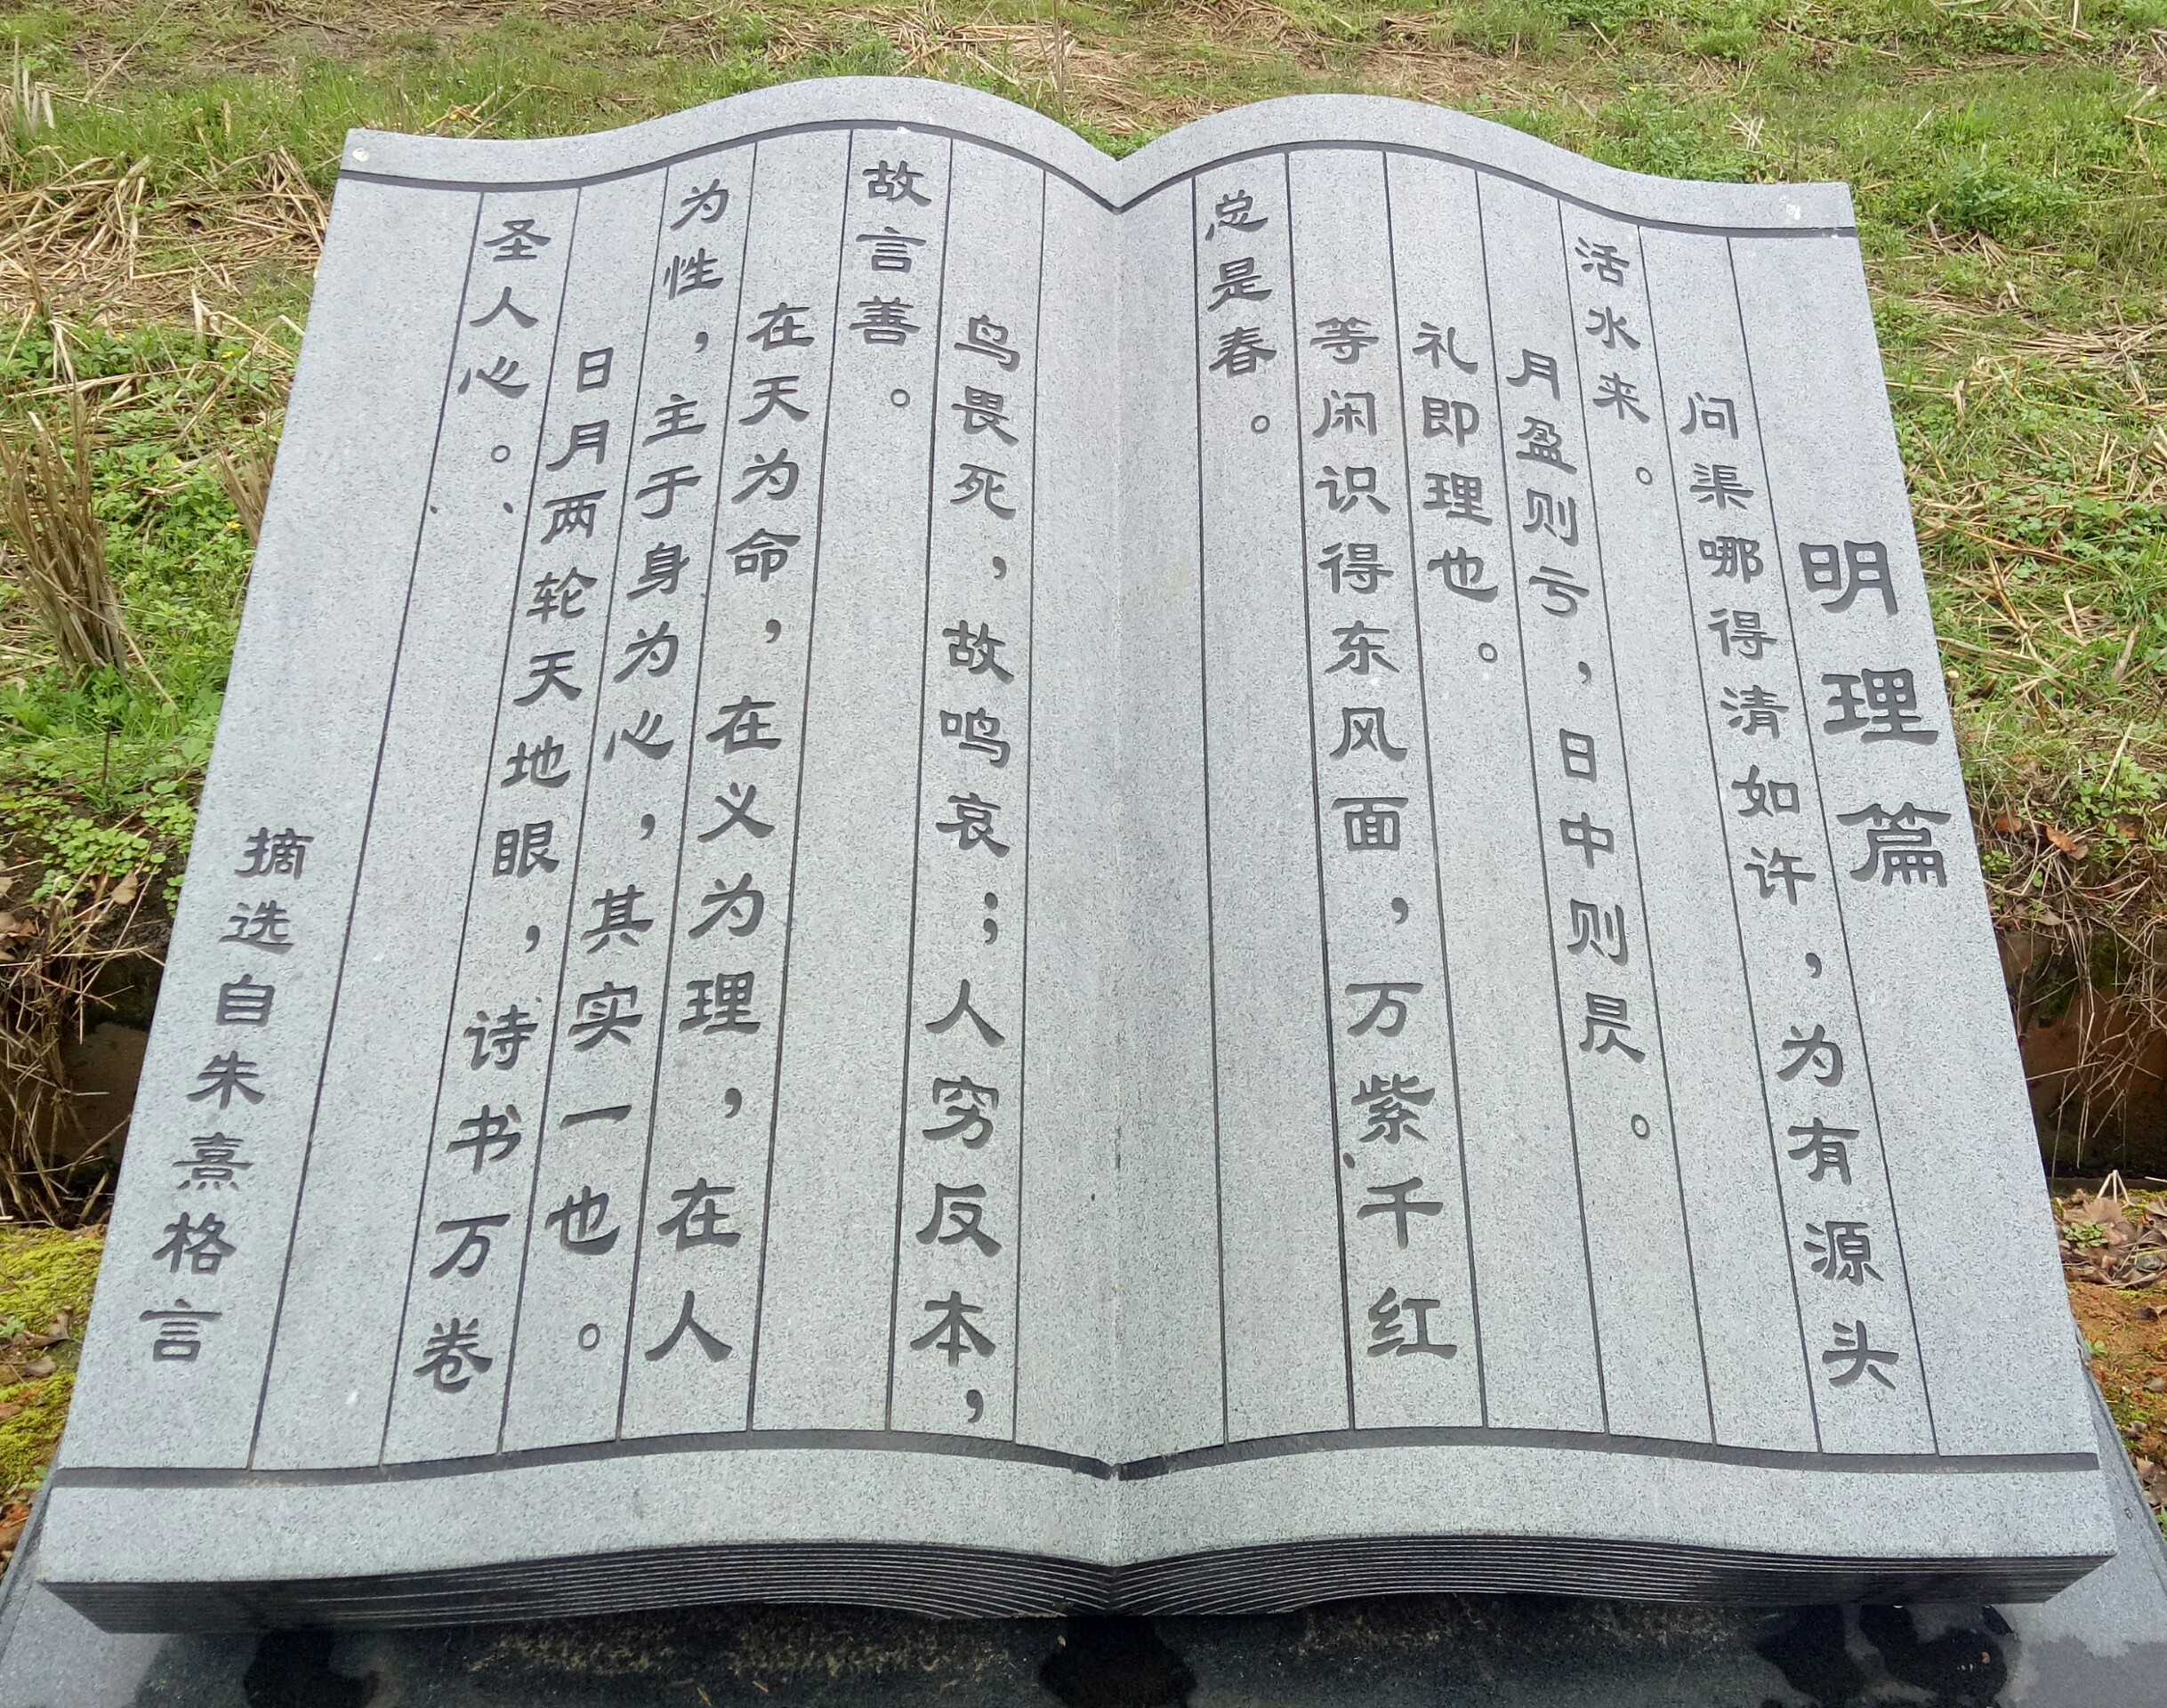 明理篇
问渠哪得清如许，为有源头
活水来。
月盈则亏，日中则昃。
礼即理也。
等闲识得东风面，万紫千红
总是春。
鸟畏死，故鸣哀；人穷反本，
故言善。
在天为命，在义为理，在人
为性，主于身为心，其实一也。
日月两轮天地眼，诗书万卷
圣人心。
摘选自朱熹格言